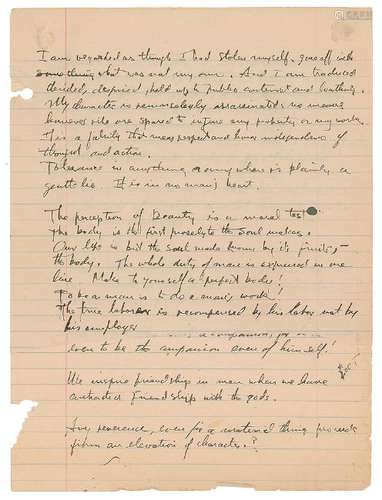 I am regarded as though I had stolen myself, gone off with
something that was not my own. And I am traduced
derided, despised held up to public contempt and loathing.
My character is remorselessly assassinated: no means
however vile are spared to injure my property or my work.
It is a fallacy that men respect and honor independence of
thought and action.
Tolerance in anything anywhere is plainly a
gentle lie. It is in no man's heart.
The perception of Beauty is a moral test
The body is the first proselyte the Soul makes.
Our life is but the soul made known by its fruits,—
the body. The whole duty of man is expressed in one
line Make to yourself a perfect body!
To be a man is to do a man's work
The true laborer is recompensed by his labor not by
his employer
a companion, or
even to be the companion even of himself!
We inspire friendship in men when we have
contracted friendship with the gods.
Does reverence, even for a material thing proceed
from an elevation of character.?